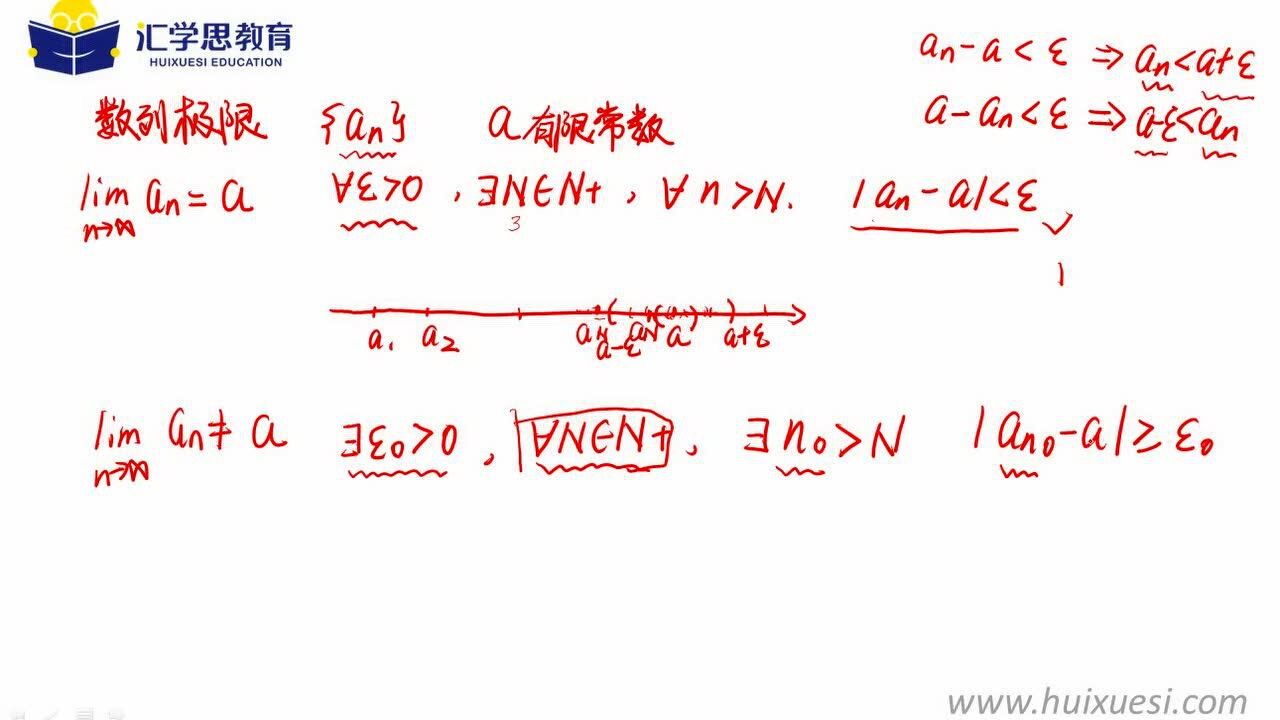 汇学思教育
HUIXUESI EDUCATION
aₙ - a < ε ⇒ aₙ < a+ε
a - aₙ < ε ⇒ a-ε < aₙ
数列极限 {aₙ} a 有限常数
lim aₙ = a ∀ε>0 , ∃N∈N+ , ∀n>N. |aₙ - a|<ε
n→∞
3
1
a₁ a₂ a-ε a a+ε
lim aₙ ≠ a ∃ε₀>0 , ∀N∈N+ , ∃n₀>N |aₙ₀ - a| ≥ ε₀
n→∞
www.huixuesi.com